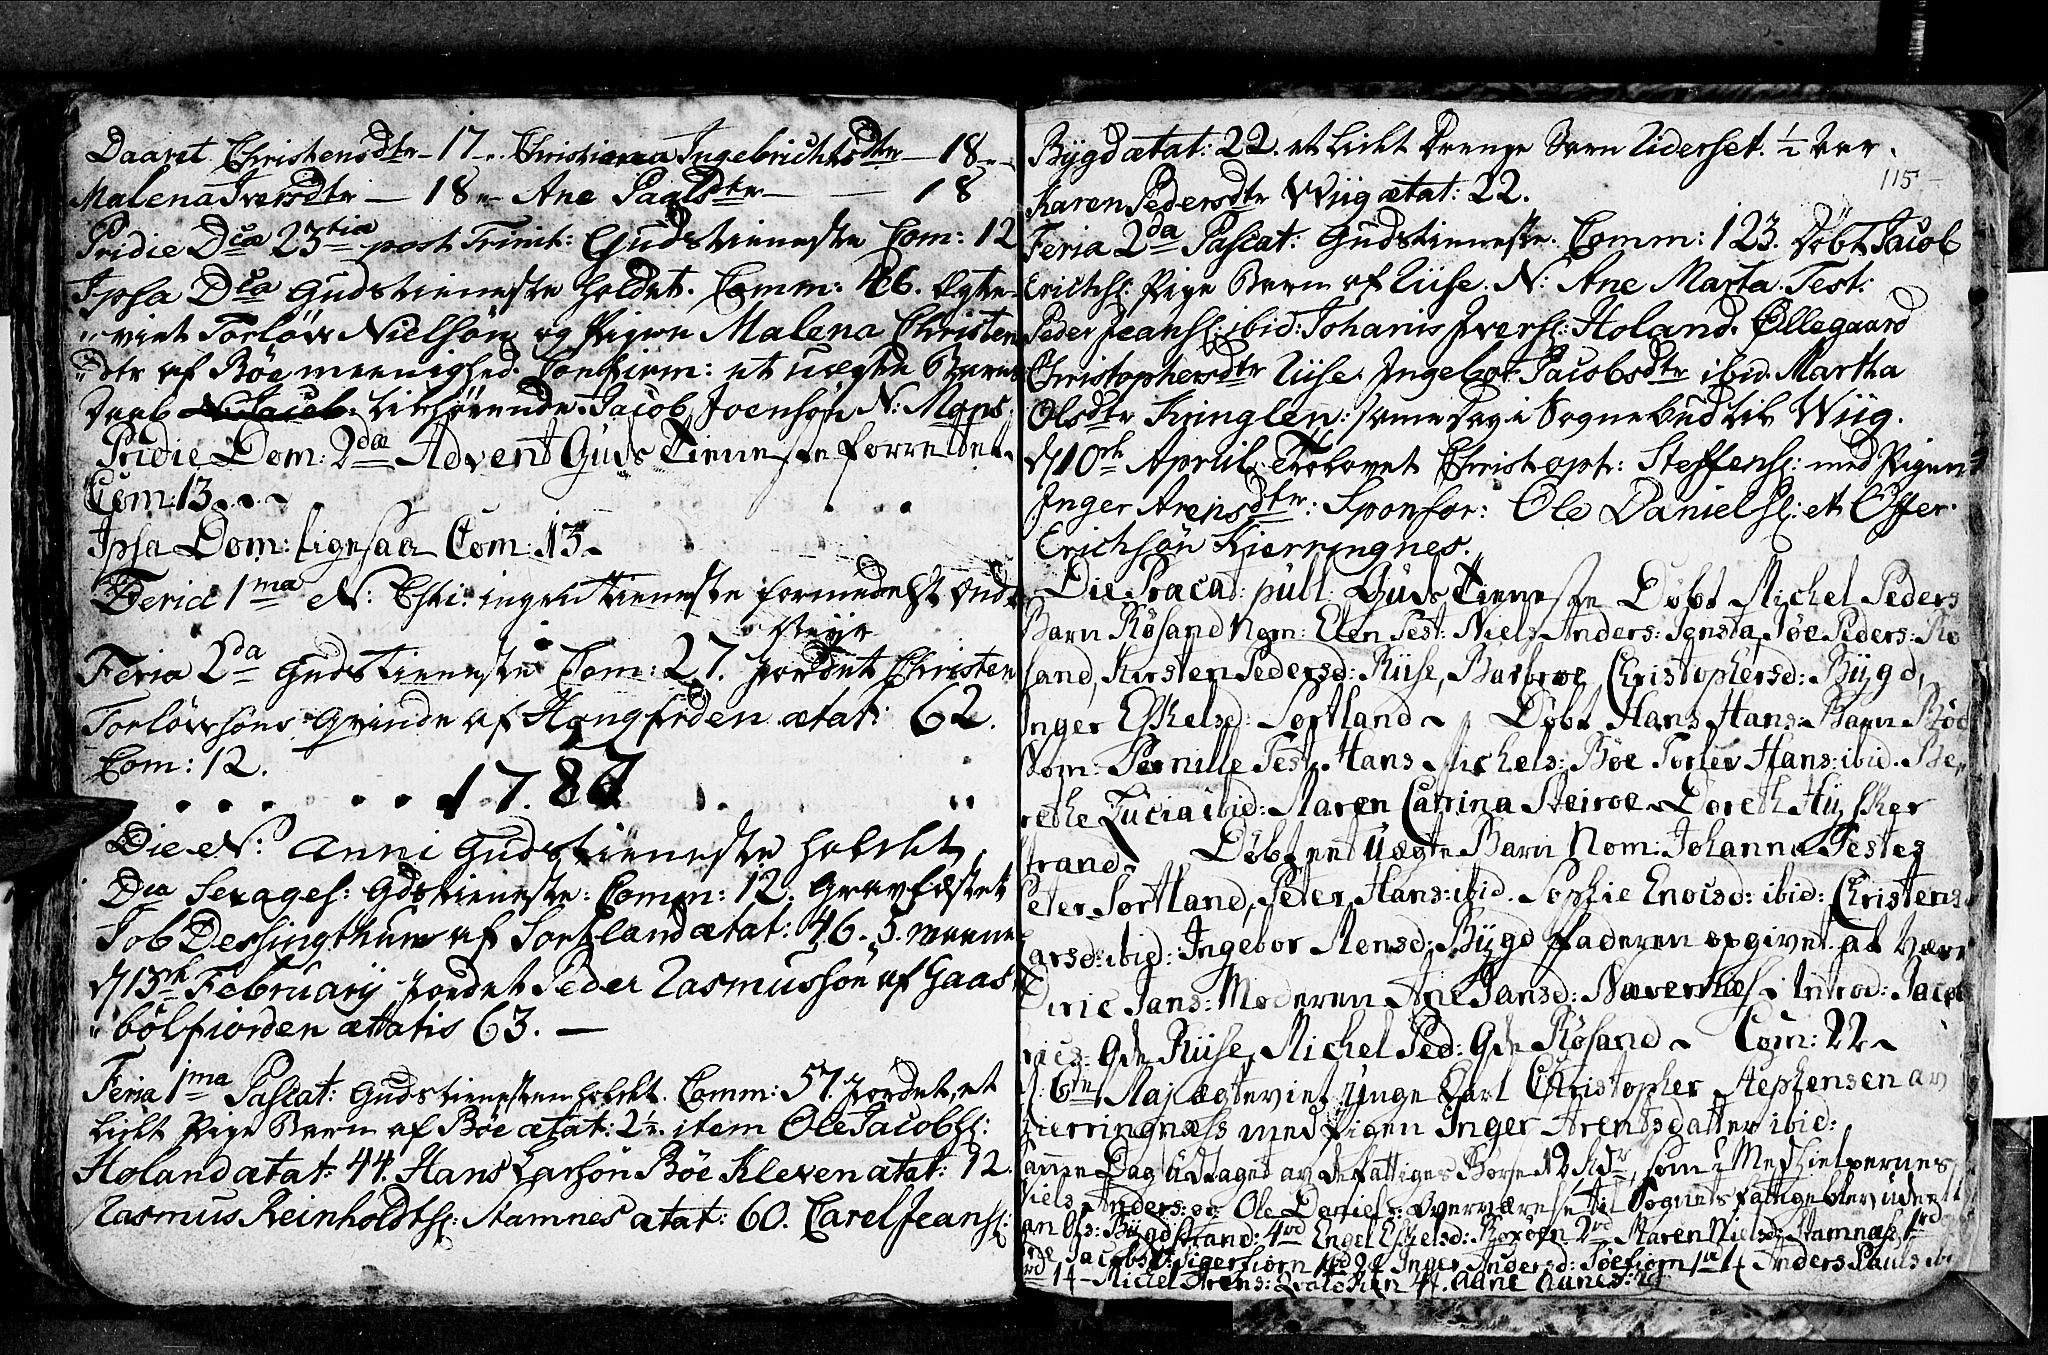 Daaret Christensdtr – 17 – Christiana Ingebrichtsdtr – 18 –
Malena Iversdtr – 18 – Ane Paalsdtr – – 18
Pridie Dca 23tia post Trinit: Gudstieneste Com: 12
Ipsa Dca Gudstieneste holdet. Comm: 46. Ægte-
viet Torløv Nielsøn og Pigen Malena Christen
dtr af Bøe meenighed. Confirm: et uægte Barns
Daab N: Jacob. tilhørende Jacob Joensøn N: Mons
Pridie Dom: 2dæ Advent Guds Tieneste forrettet
Com: 13.
Ipsa Dom: ligesaa Com: 13.
Feria 1ma N: Chti: ingen tieneste formedelst ond
Veyr
Feria 2da Gudstieneste Com: 27. Jordet Christen
Torløvsøns Qvinde af Hongfrden ætat: 62.
Com: 12.
1787
Die N: anni Gudstieneste holdet
Dca Sexages: Gdstieneste: Comm: 12. Gravfæstet
Job Dessingthun af Sortland ætat: 46. 5. meene
d 13de February Jordet Peder Rasmussøn af Gaas
bølfiorden ætatis 63. –
Feria 1ma Pascat: Gudstienesten holdt. Comm: 57. Jordet et
lidt Pige Barn af Bøe ætat: 2½. item Ole Jacobss:
Holand ætat: 44. Hans Larsøn Bøe Kleven ætat: 12.
Rasmus Reinholdtss: Stamnes ætat: 60. Carel Jeanss:
Bÿgd ætat: 22. et lidt Drenge Barn Riderset. ½ Aar.
115
Karen Pedersdtr Wiig ætat: 22.
Feria 2da Pascat: Gudstieneste. Comm: 123. Døbt Jacob
Erichss: Pige Barn af Riise. N: Ane Marta. Test:
Peder Jeanss: ibid: Johanis Iverss: Holand. Ollegaard
Christophersdtr Riise. Ingebor Jacobsdtr ibid. Martha
Olsdtr Kringlen: samme dag i Sognebud til Wiig.
d 10de April Trolovet Christoph: Steffenss: med Pigen
Inger Arensdtr: Sponsor: Ole Danielss: et Offer
Erichsøn Kierringnes.
Die Præcat: publ: Guds Tieneste Døbt Michel Peders
Barn Røsand Nom: Elen Test: Niels Anders: Jensta, Jøe Peders: Rø
sand, Kirsten Pedersd: Riise, Barbroe Christophersd: Bÿgd,
Inger Eskelsd: Sortland. Døbt Hans Hans: Barn Bøe
Nom: Pernille Test. Hans Michels: Bøe Torlev Hans: ibid. Be
rethe Lucia ibid: Maren Catrina Steiroe. Doreth Hÿsker
strand. Døbt ent Uægte Barn Nom: Johanna Testes
Peter Sortland, Peter Hans: ibid. Sophie Enoisd: ibid: Christens
Larsd: ibid: Ingebor Mensd: Bÿgd Faderen opgivet at være
Diric Jans: Moderen Ane Jansd: Næverness. Introd: Jacob
Erics: Qde Riise, Michel Ped: Qde Røsand. Com: 22.
d: 6te Maj ægteviet Unge Karl Christopher Stephensen av
Kierringnæss med Pigen Inger Arentsdatter ibid:
Samme Dag Udtaget av de fattiges Børse 12 Rdr, som i Medhielpernes
Niels Anders: og Ole Daniels: overværelse til Sognets fattige blev uddelt
Jan Ols: Bÿgdstrand: 4rd Engel Eskelsd: Roxøen 2rd Maren Nielsd: Stamnæss, 1rd
Jacobsd: Sigerfiorn Inger Andersd: Tøefiorn Anders Pauls
Michel Arens: